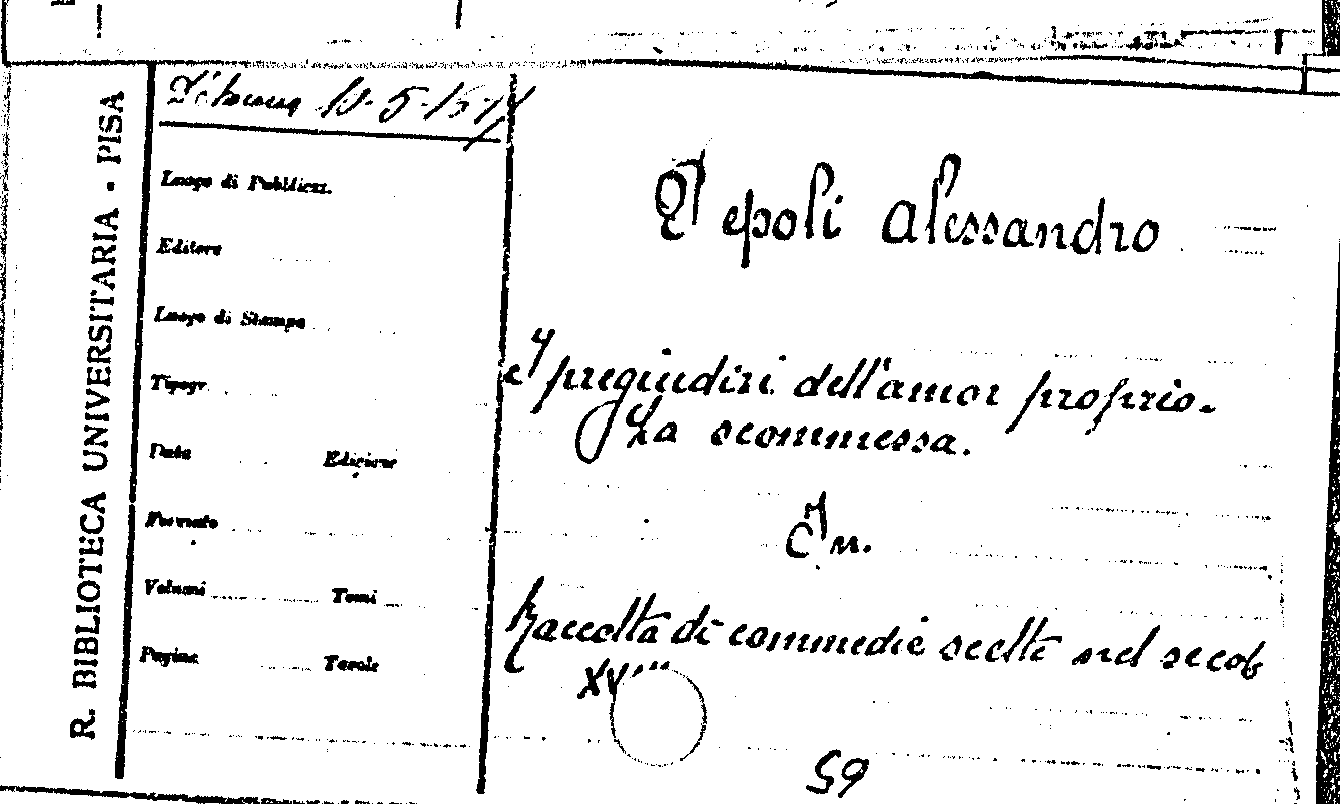 R. BIBLIOTECA UNIVERSITARIA - PISA
Luogo di Pubblicaz.
Editore
Luogo di Stampa
Tipogr.
Data Edizione
Formato
Volumi Tomi
Pagine Tavole
Pepoli Alessandro
I pregiudizi dell'amor proprio.
La scommessa.
In.
Raccolta di commedie scelte nel secolo
XVIII
59